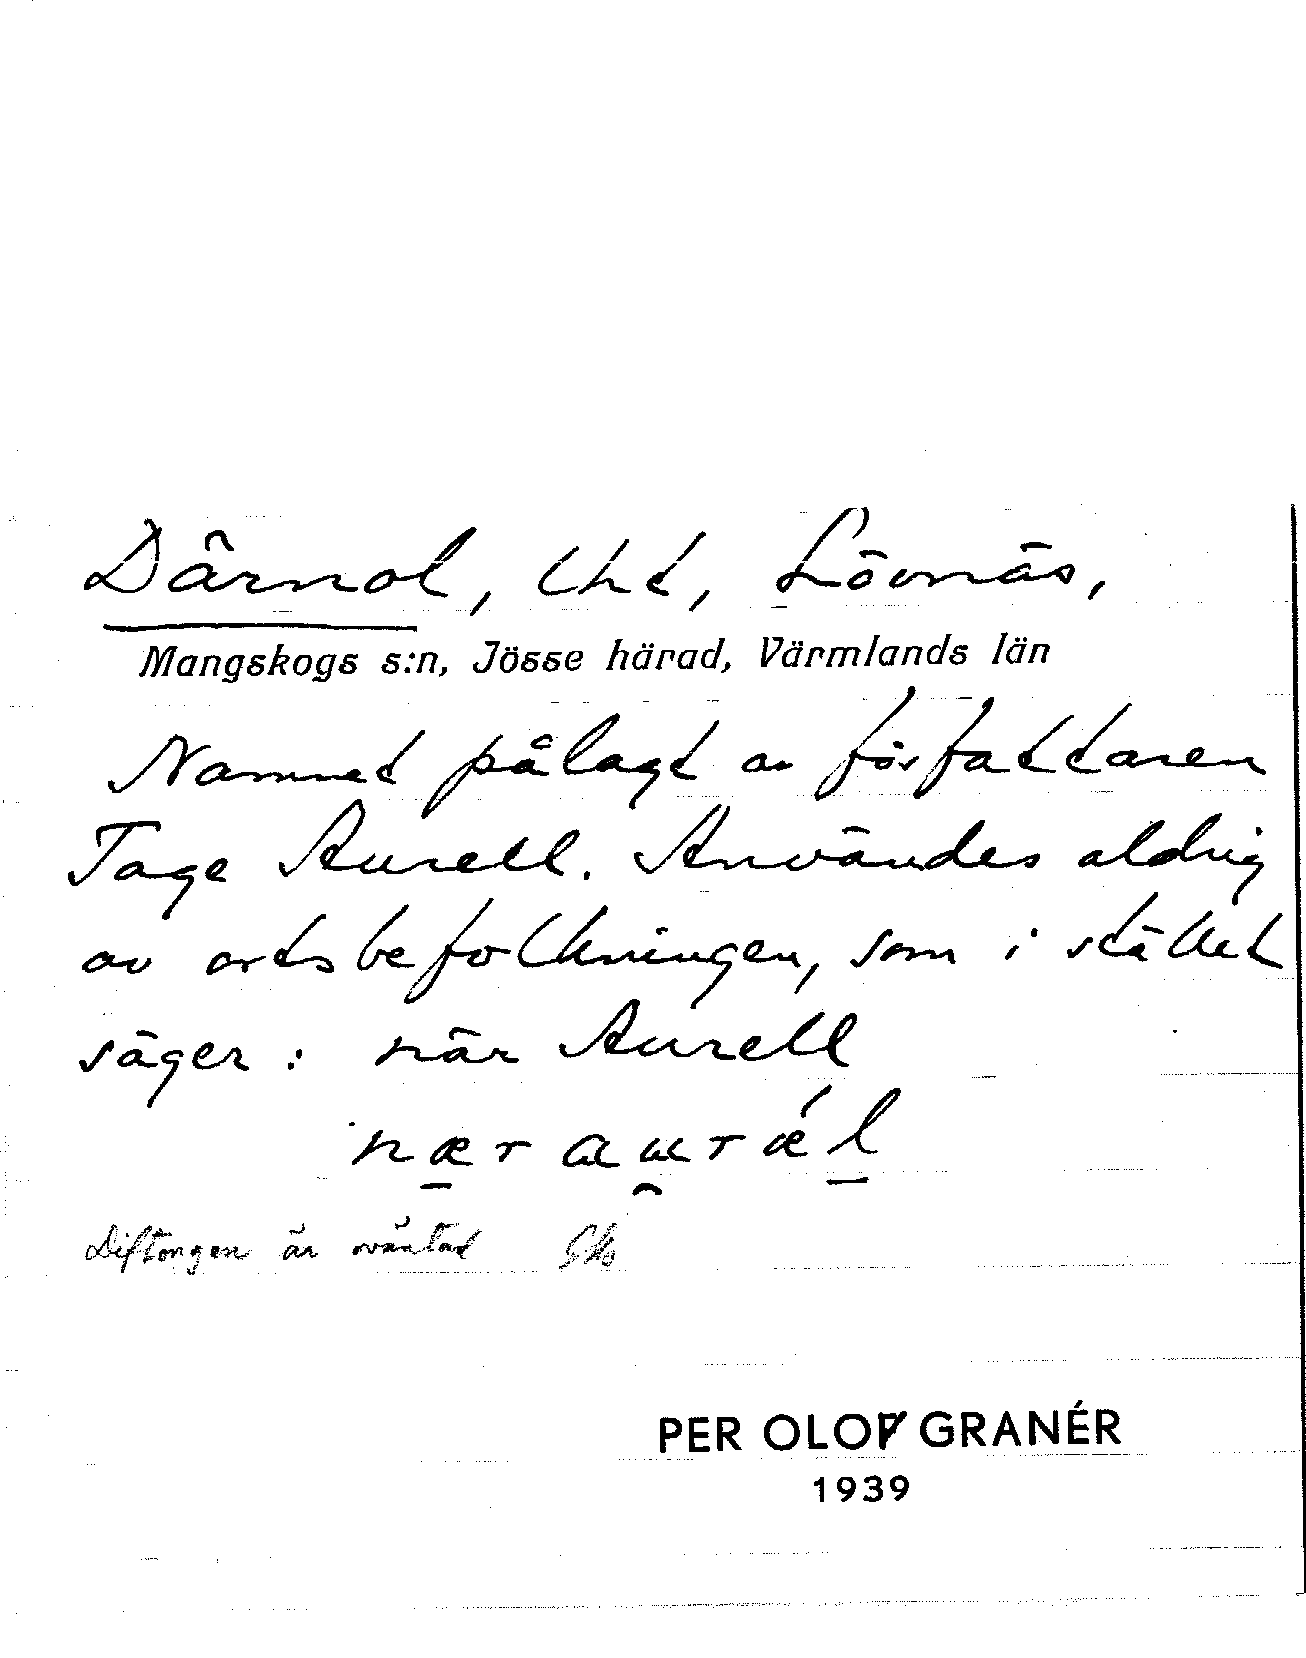 Därnol, lht, Lövnäs,
Mangskogs s:n, Jösse härad, Värmlands län
Namnet pålagt av författaren
Tage Aurell. Användes aldrig
av ortsbefolkningen, som i stället
säger: när Aurell
nær auræ´l
Diftongen är oväntad
PER OLOF GRANÉR
1939